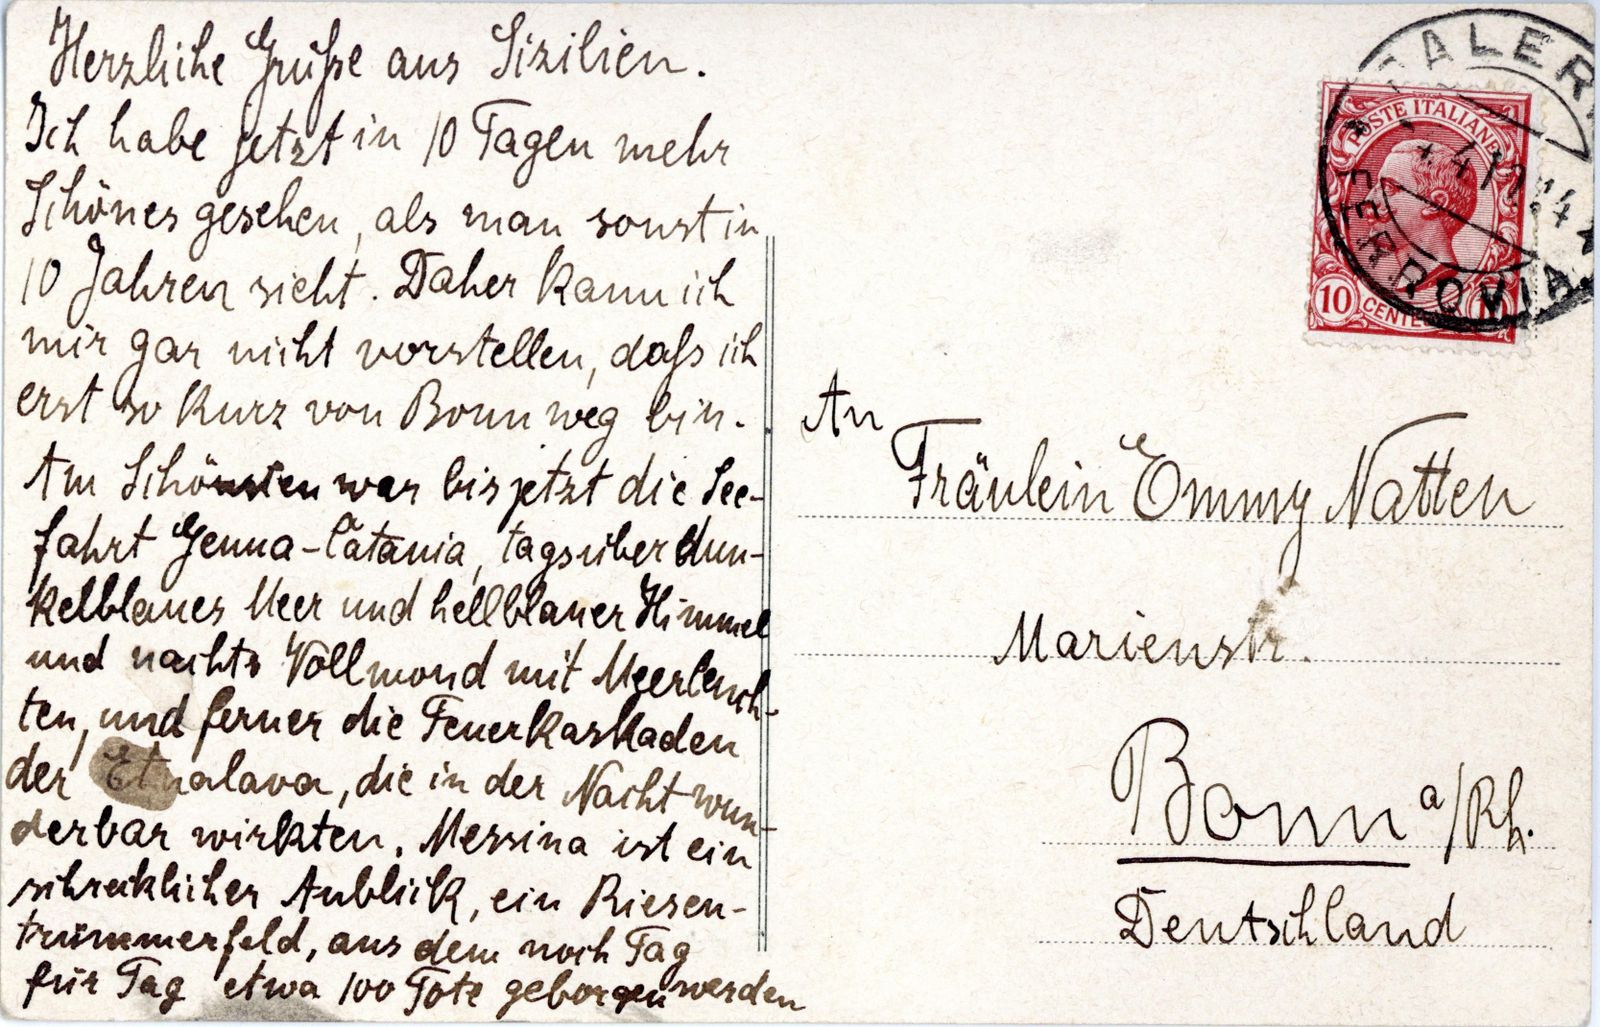 Herzliche Grüße aus Sizilien.
Ich habe jetzt in 10 Tagen mehr
Schönes gesehen, als man sonst in
10 Jahren sieht. Daher kann ich
mir gar nicht vorstellen, daß ich
erst so kurz von Bonn weg bin.
Am Schönsten war bis jetzt die See-
fahrt Genua-Catania, tagsüber dun-
kelblaues Meer und hellblauer Himmel
und nachts Vollmond mit Meerleuch-
ten, und ferner die Feuerkaskaden
der Etnalava, die in der Nacht wun-
derbar wirkten. Messina ist ein
schrecklicher Anblick, ein Riesen-
trümmerfeld, aus dem noch Tag
für Tag etwa 100 Tote geborgen werden
PALER
FERROVIA
POSTE ITALIANE
10 CENTES 10
An
Fräulein Emmy Natten
Marienstr.
Bonn a/Rh.
Deutschland